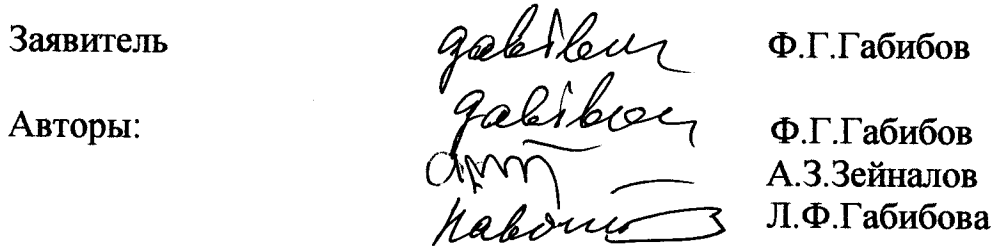 Заявитель Ф.Г.Габибов
Авторы: Ф.Г.Габибов
А.З.Зейналов
Л.Ф.Габибова